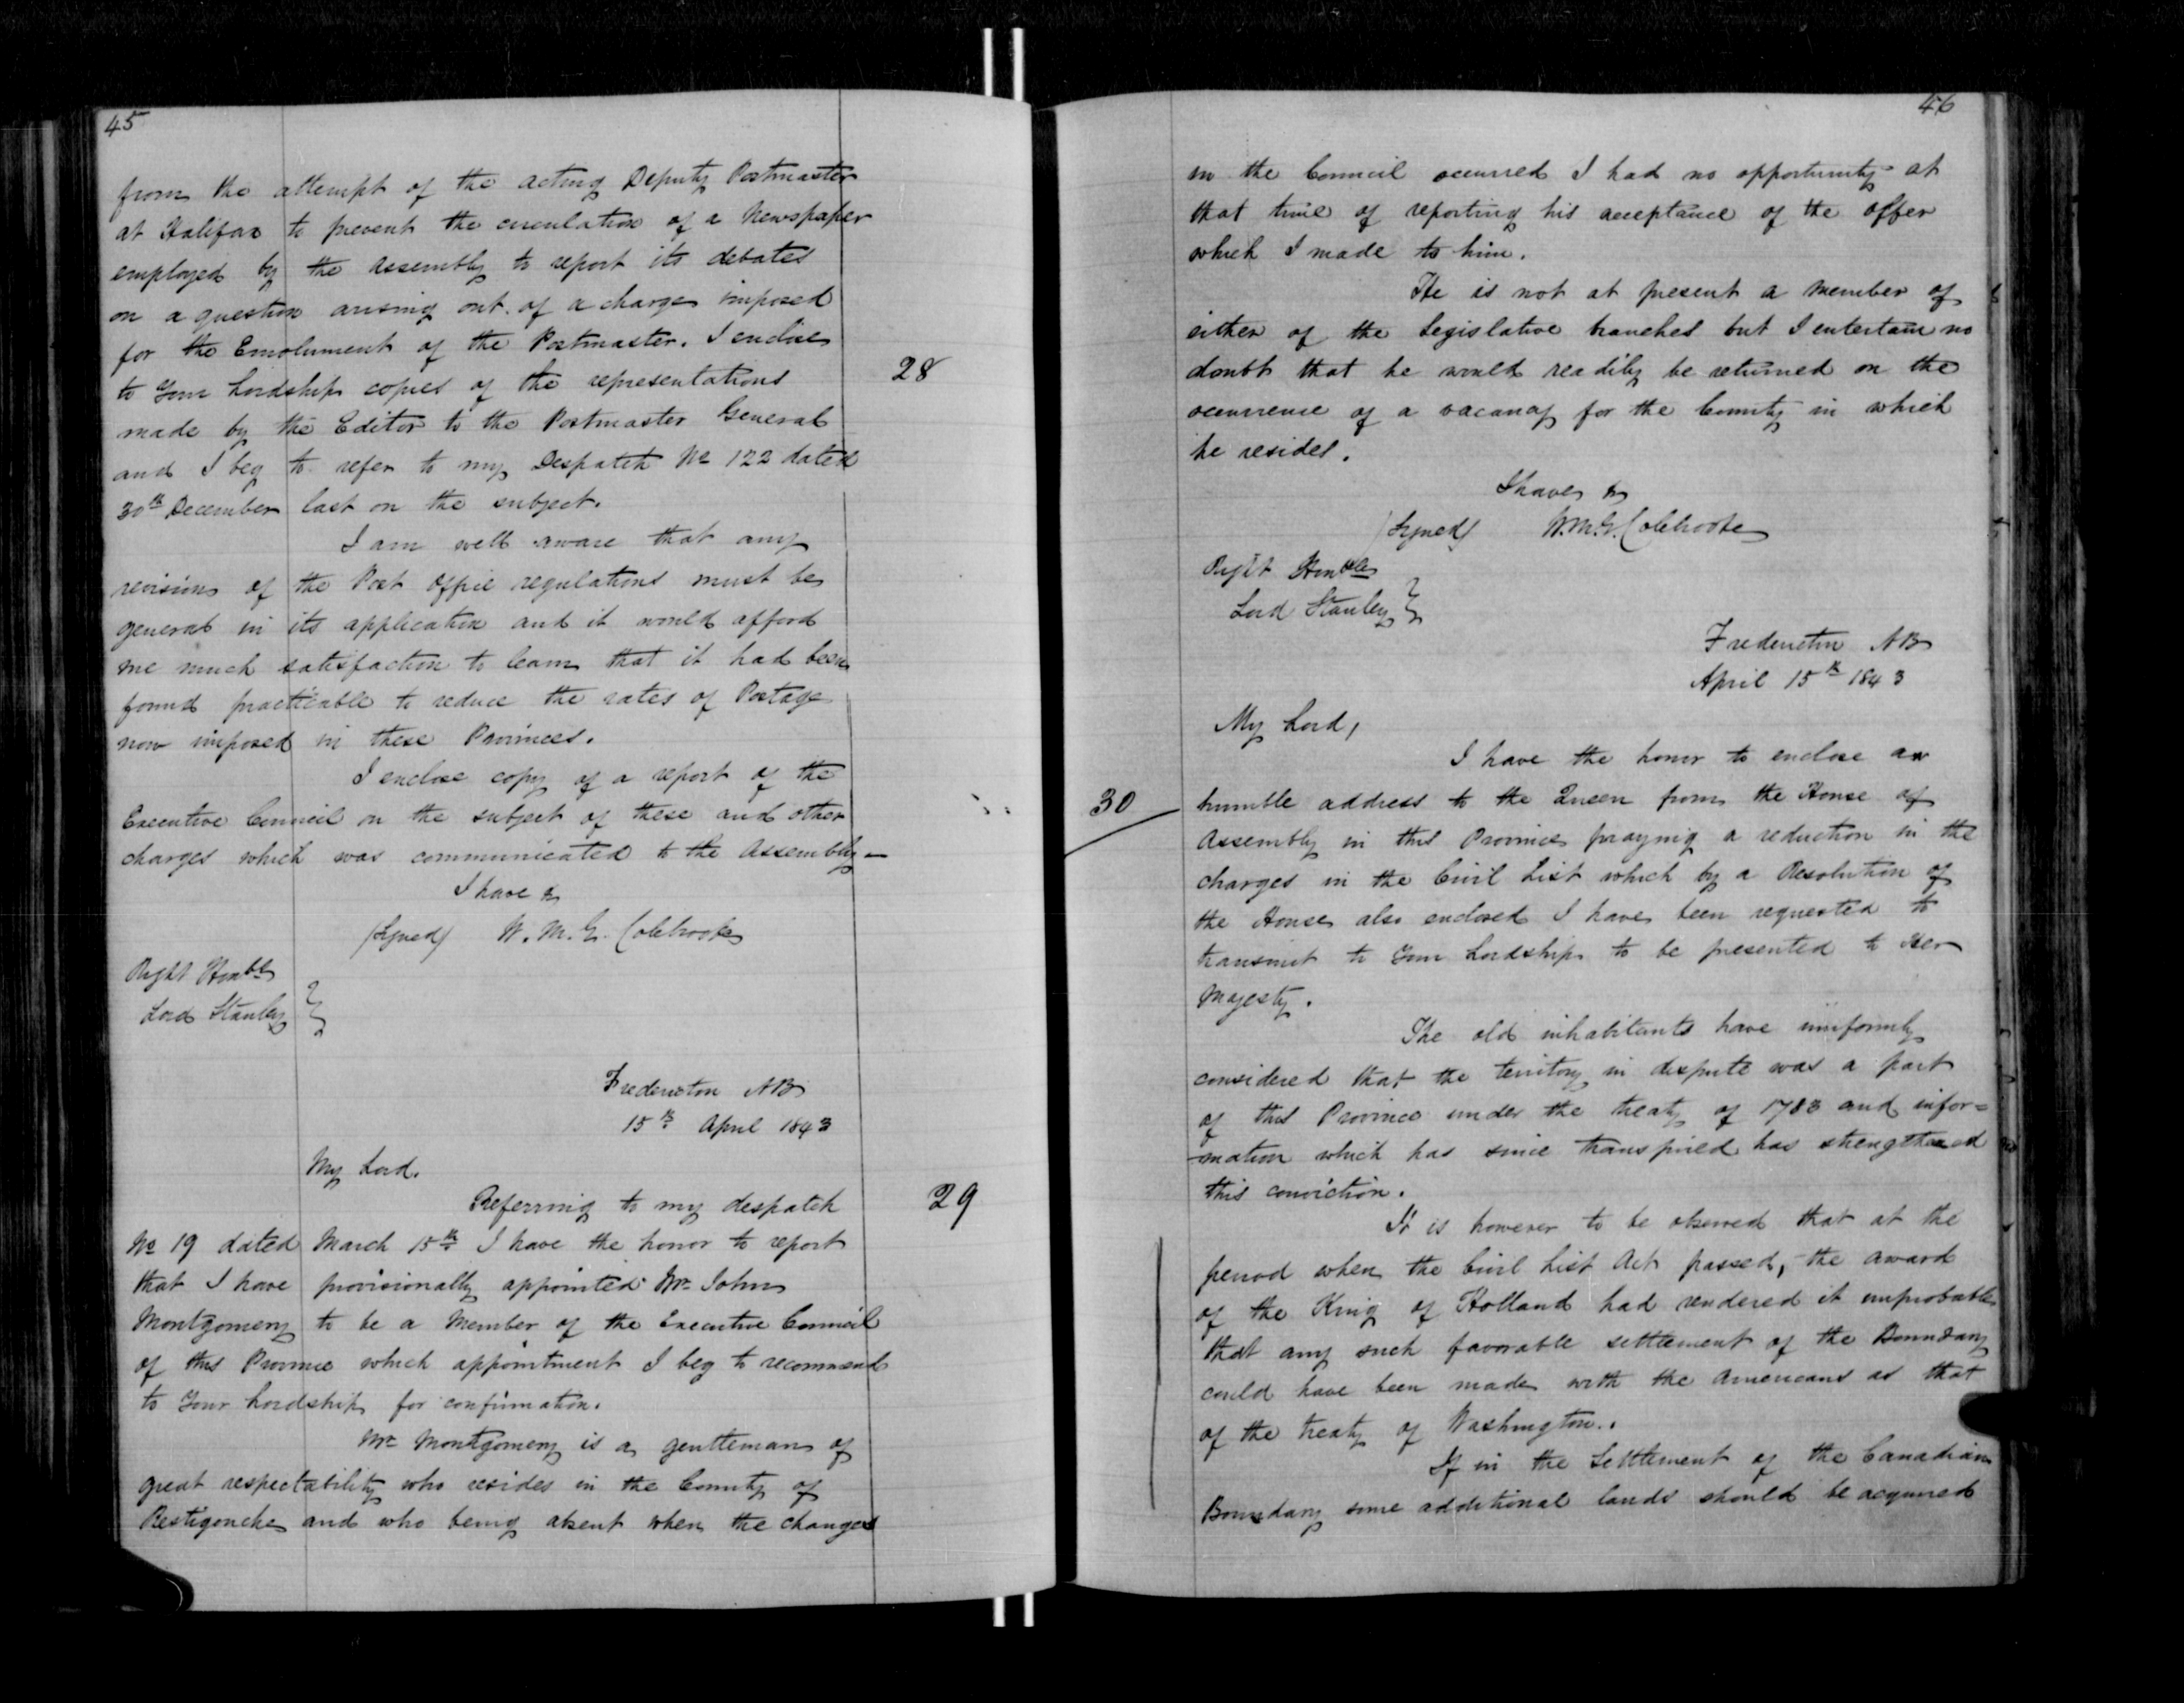 45
from the attempt of the acting Deputy Postmaster
at Halifax to prevent the circulation of a Newspaper
employed by the Assembly to report its debates
on a question arising out of a charge imposed
for the Emolument of the Postmaster. I enclose
to Your Lordship copies of the representations
28
made by the Editor to the Postmaster General
and I beg to refer to my Despatch No 122 dated
30th December last on the subject.
I am well aware that any
revision of the Post Office regulations must be
general in its application and it would afford
me much satisfaction to learn that it had been
found practicable to reduce the rates of Postage
now imposed in these Provinces.
I enclose copy of a report of the
Executive Council on the subject of these and other
charges which was communicated to the Assembly—
I have &
(Signed) W. M. G. Colebrooke
Right Honble
Lord Stanley }
Fredericton NB
15th April 1843
My Lord.
Referring to my despatch
29
No 19 dated March 15th I have the honor to report
that I have provisionally appointed Mr John
Montgomery to be a Member of the Executive Council
of this Province which appointment I beg to recommend
to Your Lordship for confirmation.
Mr Montgomery is a gentleman of
great respectability who resides in the County of
Restigouche and who being absent when the changes
46
in the Council occurred I had no opportunity at
that time of reporting his acceptance of the offer
which I made to him.
He is not at present a Member of
either of the Legislative branches but I entertain no
doubt that he would readily be returned on the
occurrence of a vacancy for the County in which
he resides.
I have &
(Signed) W.M.G. Colebrooke
Right Honble
Lord Stanley }
Fredericton NB
April 15th 1843
My Lord,
I have the honor to enclose an
30
humble address to the Queen from the House of
Assembly in this Province praying a reduction in the
charges in the Civil List which by a Resolution of
the House also enclosed I have been requested to
transmit to Your Lordship to be presented to Her
Majesty.
The old inhabitants have uniformly
considered that the territory in dispute was a part
of this Province under the treaty of 1783 and infor=
mation which has since transpired has strengthened
this conviction.
It is however to be observed that at the
period when the Civil List Act passed, the award
of the King of Holland had rendered it improbable
that any such favorable settlement of the Boundary
could have been made with the Americans as that
of the treaty of Washington.
If in the Settlement of the Canadian
Boundary some additional lands should be acquired